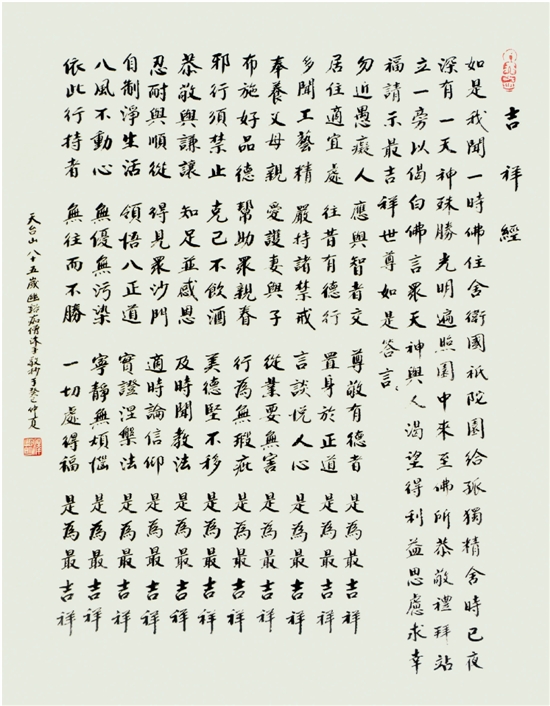 吉祥經
如是我聞一時佛住舍衛國祇陀園給孤獨精舍時已夜
深有一天神殊勝光明遍照園中來至佛所恭敬禮拜站
立一旁以偈白佛言眾天神與人渴望得利益思慮求幸
福請示最吉祥世尊如是答言。
勿近愚癡人 應與智者交 尊敬有德者 是為最吉祥
居住適宜處 往昔有德行 置身於正道 是為最吉祥
多聞工藝精 嚴持諸禁戒 言談悅人心 是為最吉祥
奉養父母親 愛護妻與子 從業要無害 是為最吉祥
布施好品德 幫助眾親眷 行為無瑕疵 是為最吉祥
邪行須禁止 克己不飲酒 美德堅不移 是為最吉祥
恭敬與謙讓 知足並感恩 及時聞教法 是為最吉祥
忍耐與順從 得見眾沙門 適時論信仰 是為最吉祥
自制淨生活 領悟八正道 實證涅槃法 是為最吉祥
八風不動心 無憂無污染 寧靜無煩惱 是為最吉祥
依此行持者 無往而不勝 一切處得福 是為最吉祥
天台山八十五歲幽溪僧沐手敬抄于癸巳仲夏